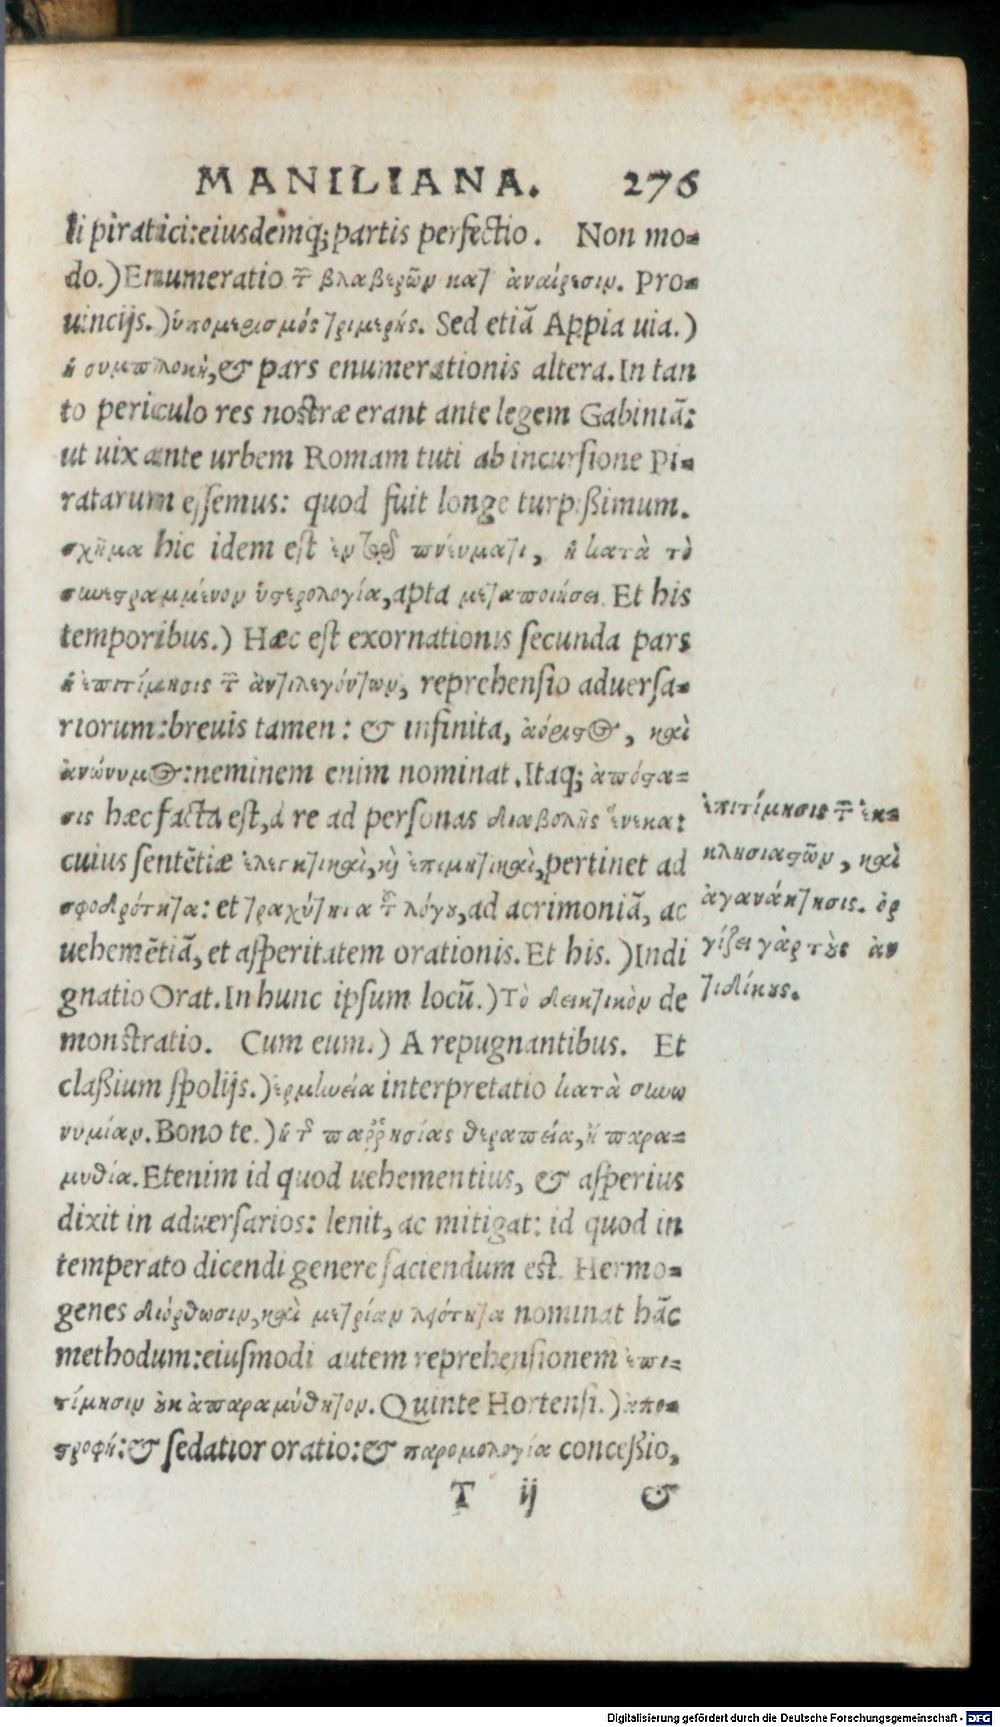 MANILIANA. 276
li piratici: eiusdemq; partis perfectio. Non mo=
do.) Enumeratio τ͂ βλαβερῶν κατ᾽ ἀναίρεσιν. Pro=
uincijs.) ὑπομερισμός τριμερής. Sed etiā Appia uia.)
ἡ συμπλοκὴ, & pars enumerationis altera. In tan
to periculo res nostræ erant ante legem Gabiniā:
ut uix ante urbem Romam tuti ab incursione Pi=
ratarum essemus: quod fuit longe turpißimum.
σχῆμα hic idem est πνεύματι, ἢ κατὰ τὸ
συνεστραμμένον ὑστερολογία, apta μεταποιήσει. Et his
temporibus.) Hæc est exornationis secunda pars
ἡ ἐπιτίμησις τ͂ ἀντιλεγόντων, reprehensio aduersa=
riorum: breuis tamen: & infinita, ἀόριστος, καὶ
ἀνώνυμος: neminem enim nominat. Itaq; ἀπόστα=
σις hæc facta est, à re ad personas διαβολῆς ἕνεκα:
cuius sentētiæ ἐλεγκτικαὶ, κỳ ἐπιμητικαὶ, pertinet ad
σφοδρότητα: et τραχύτητα τ͂ λόγου, ad acrimoniā, ac
uehemētiā, et asperitatem orationis. Et his.) Indi
gnatio Orat. In hunc ipsum locū.) Τὸ δεικτικὸν de
monstratio. Cum eum.) A repugnantibus. Et
claßium spolijs.) ἑρμηνεία interpretatio κατὰ συνω
νυμίαν. Bono te.) ἡ τ͂ παῤῥησίας θεραπεία, ἢ παρα=
μυθία. Etenim id quod uehementius, & asperius
dixit in aduersarios: lenit, ac mitigat: id quod in
temperato dicendi genere faciendum est. Hermo=
genes διόρθωσιν, καὶ μετρίαν nominat hāc
methodum: eiusmodi autem reprehensionem ἐπι=
τίμησιν οὐκ ἀπαραμύθητον. Quinte Hortensi.) ἀπο=
στροφή: & sedatior oratio: & παρομολογία conceßio,
T ij &
ἐπιτίμησις τ͂ ἐκ=
κλησιαστῶν, καὶ
ἀγανάκτησις. ὀρ
γίζει γὰρ τοὺς ἀν
τιδίκους.
Digitalisierung gefördert durch die Deutsche Forschungsgemeinschaft - DFG